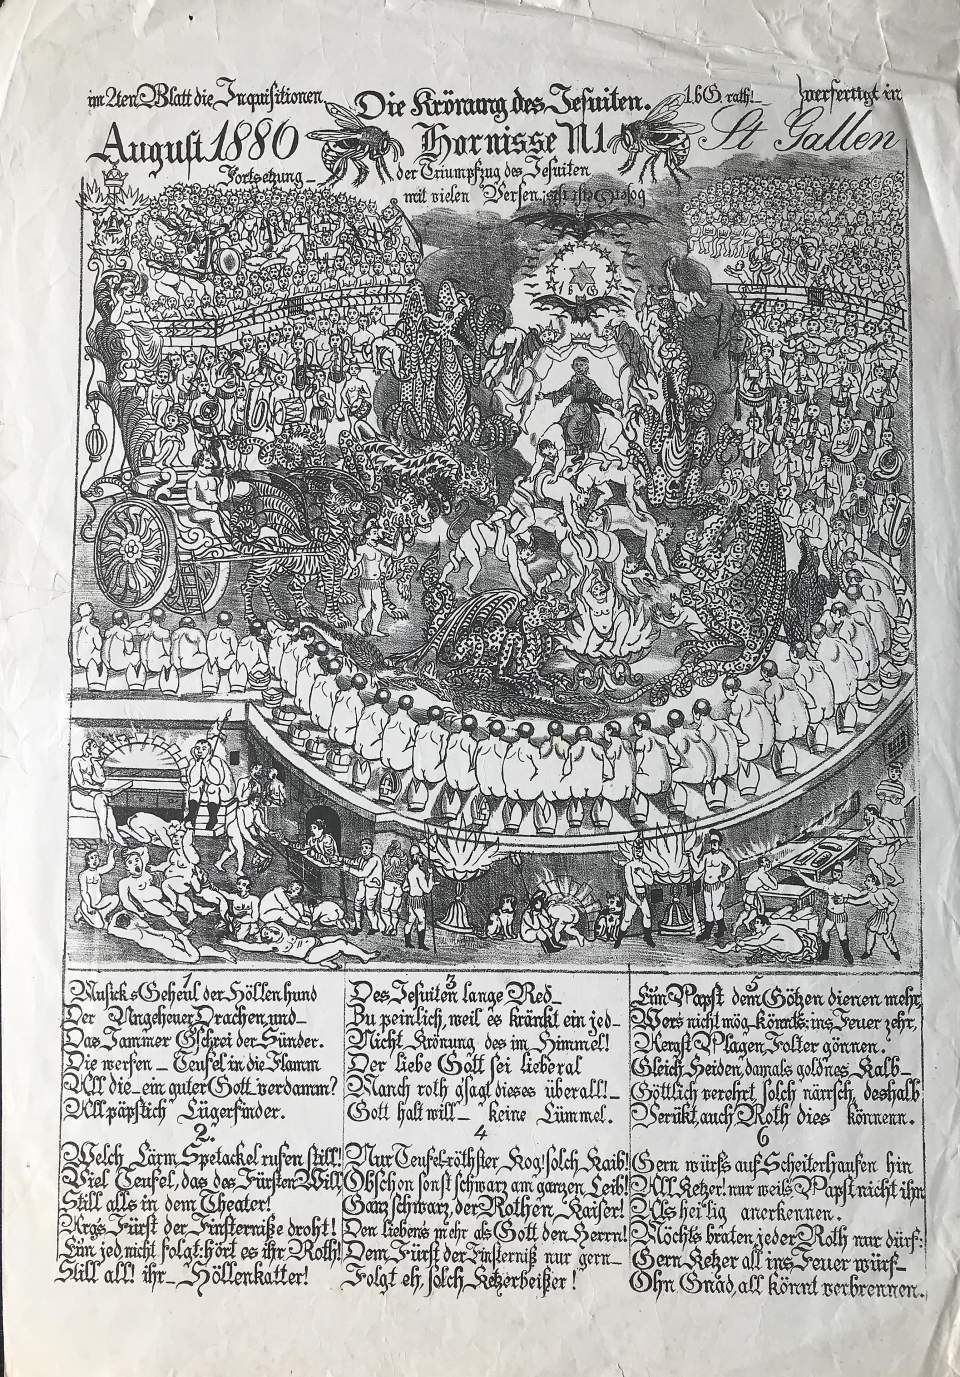 im 2ten Blatt die Inquisitionen
Die Krönung des Jesuiten.
verfertigt in
August 1886
Hornisse N1
St Gallen
Fortsetzung
der Triumpfzug des Jesuiten
mit vielen Versen
1
Musick's Geheul der Höllenhund
Der Ungeheuer Drachen, und
Das Jammer Gschrei der Sünder.
Die werfen Teufel in die Flamm
All die ein guter Gott verdamm?
All päpstich Lügerfinder.
2.
Welch Lärm, Spetackel rufen still!
Viel Teufel, das des Fürsten Will
Still alls in dem Theater!
Args Fürst der Finsterniße droht!
Ein jed, nicht folgt: hört es ihr Roth!
Still all! ihr Höllenkatter!
3
Des Jesuiten lange Red
Zu peinlich, weil es kränkt ein jed
Nicht Krönung des im Himmel!
Der liebe Gott sei liberal
Manch roth gsagt dieses überall!
Gott halt will keine Lümmel.
4
Nur Teufel röthster Rog! solch Kaib!
Obschon sonst schwarz am ganzen Leib!
Ganz schwarz, der Rothen Kaiser!
Den liebens mehr als Gott den Herrn!
Dem Fürst der Finsterniß nur gern
Folgt eh, solch Ketzerbeißer!
5
Ein Papst dem Götzen dienen mehr,
Wers nicht mög könnts: ins Feuer zehr,
Plagen, Folter gönnen.
Gleich Heiden, damals goldnes Kalb
Göttlich verehrt, solch närrsch, deshalb
Verükt, auch Roth dies könnenn.
6
Gern würfs auf Scheiterhaufen hin
All Ketzer! nur weils Papst nicht ihn
Als heilig anerkennen.
Möchts braten, jeder Roth nur dürf:
Gern Ketzer all ins Feuer würf
Ohn Gnad, all könnt verbrennen.